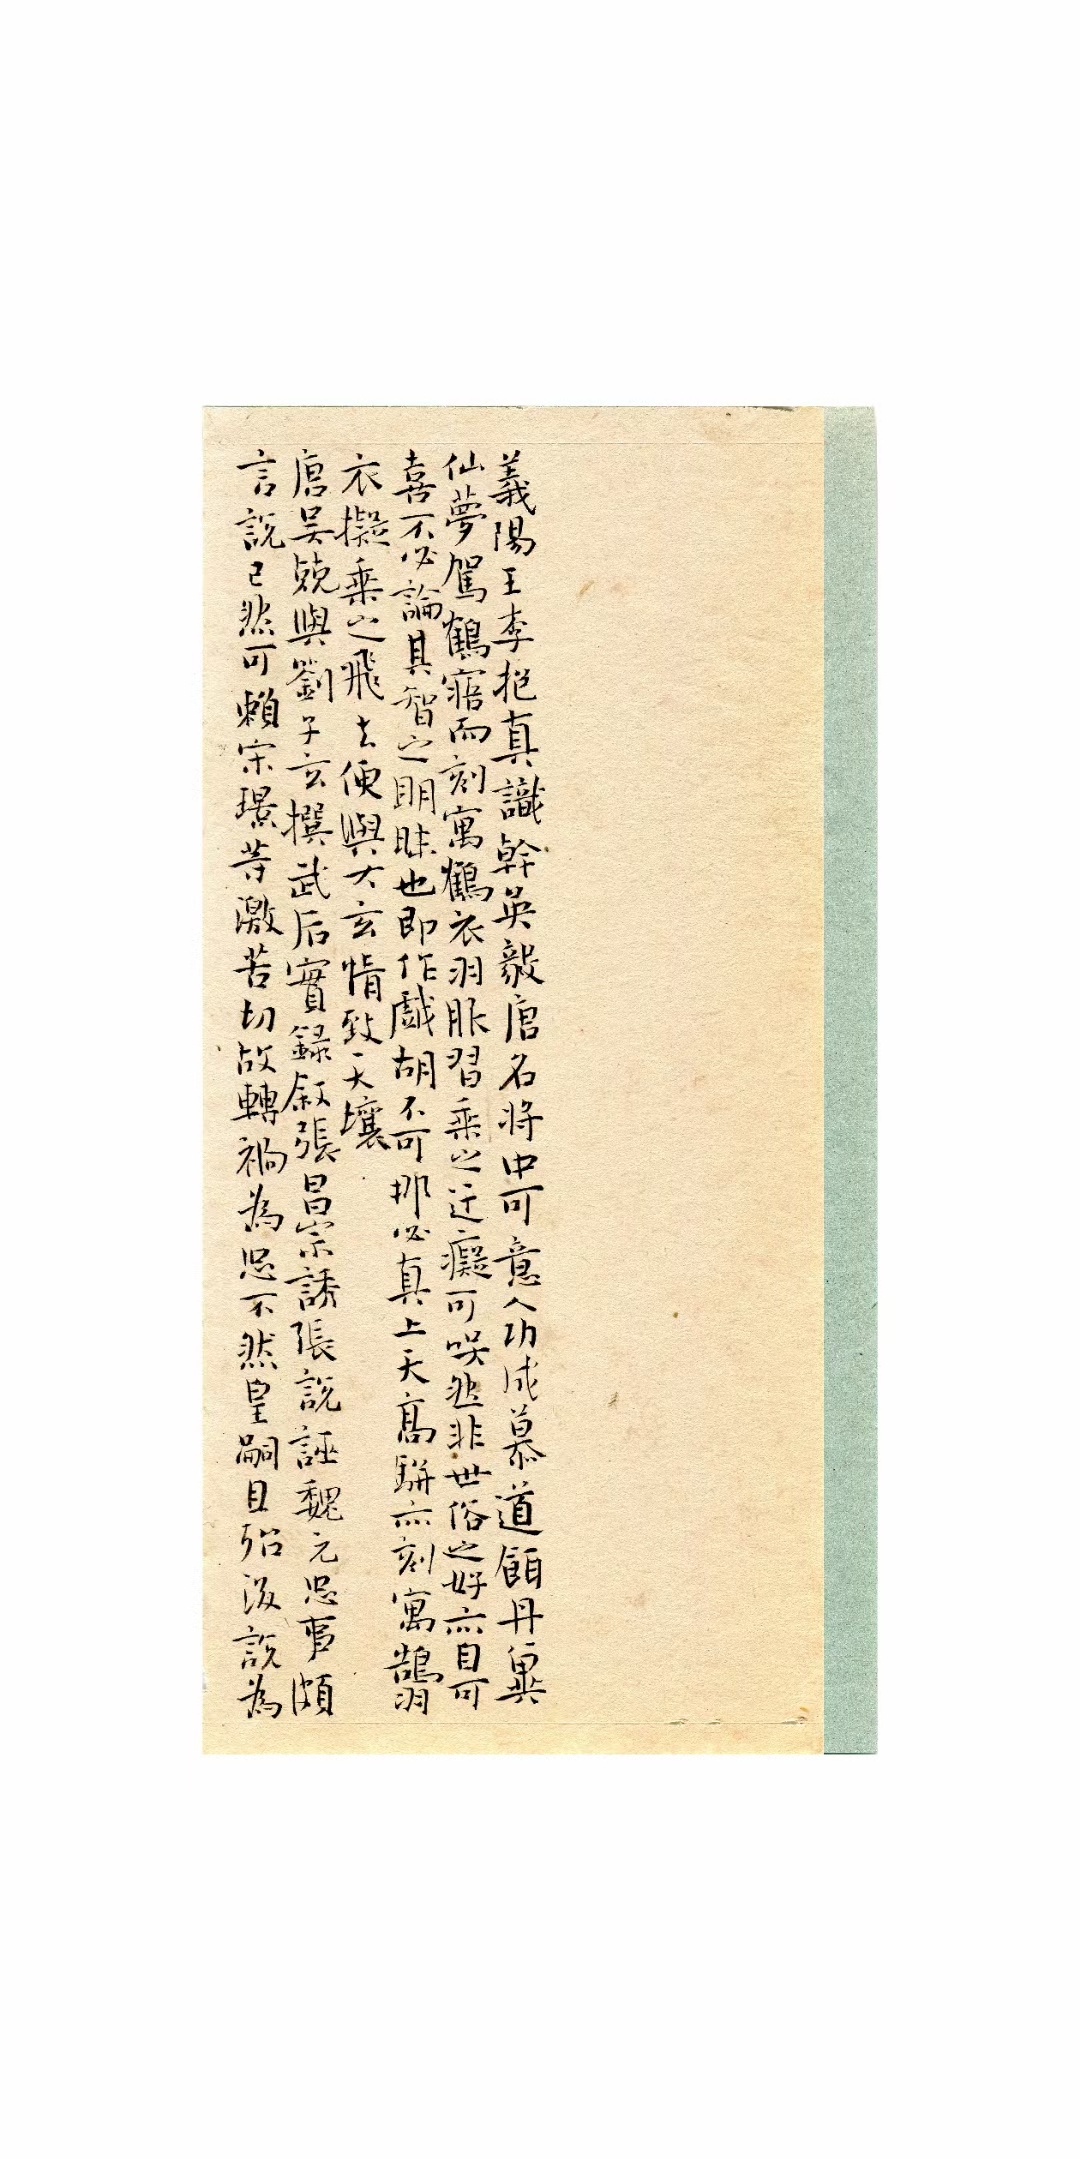 義陽王李抱真識幹英毅唐名將中可意人功成慕道餌丹冀
仙夢駕鶴寤而刻寓鶴衣羽服習乘之迂癡可咲然非世俗之好亦自可
喜不必論其智之明昧也即作戲胡不可邪必真上天高駢亦刻寓鵠羽
衣擬乘之飛去便與大玄情致天壤
唐吴兢與劉子玄撰武后實録叙張昌宗誘張説誣魏元忠事頗
言説已然可賴宋璟等激苦切故轉禍為忠不然皇嗣且殆後説為